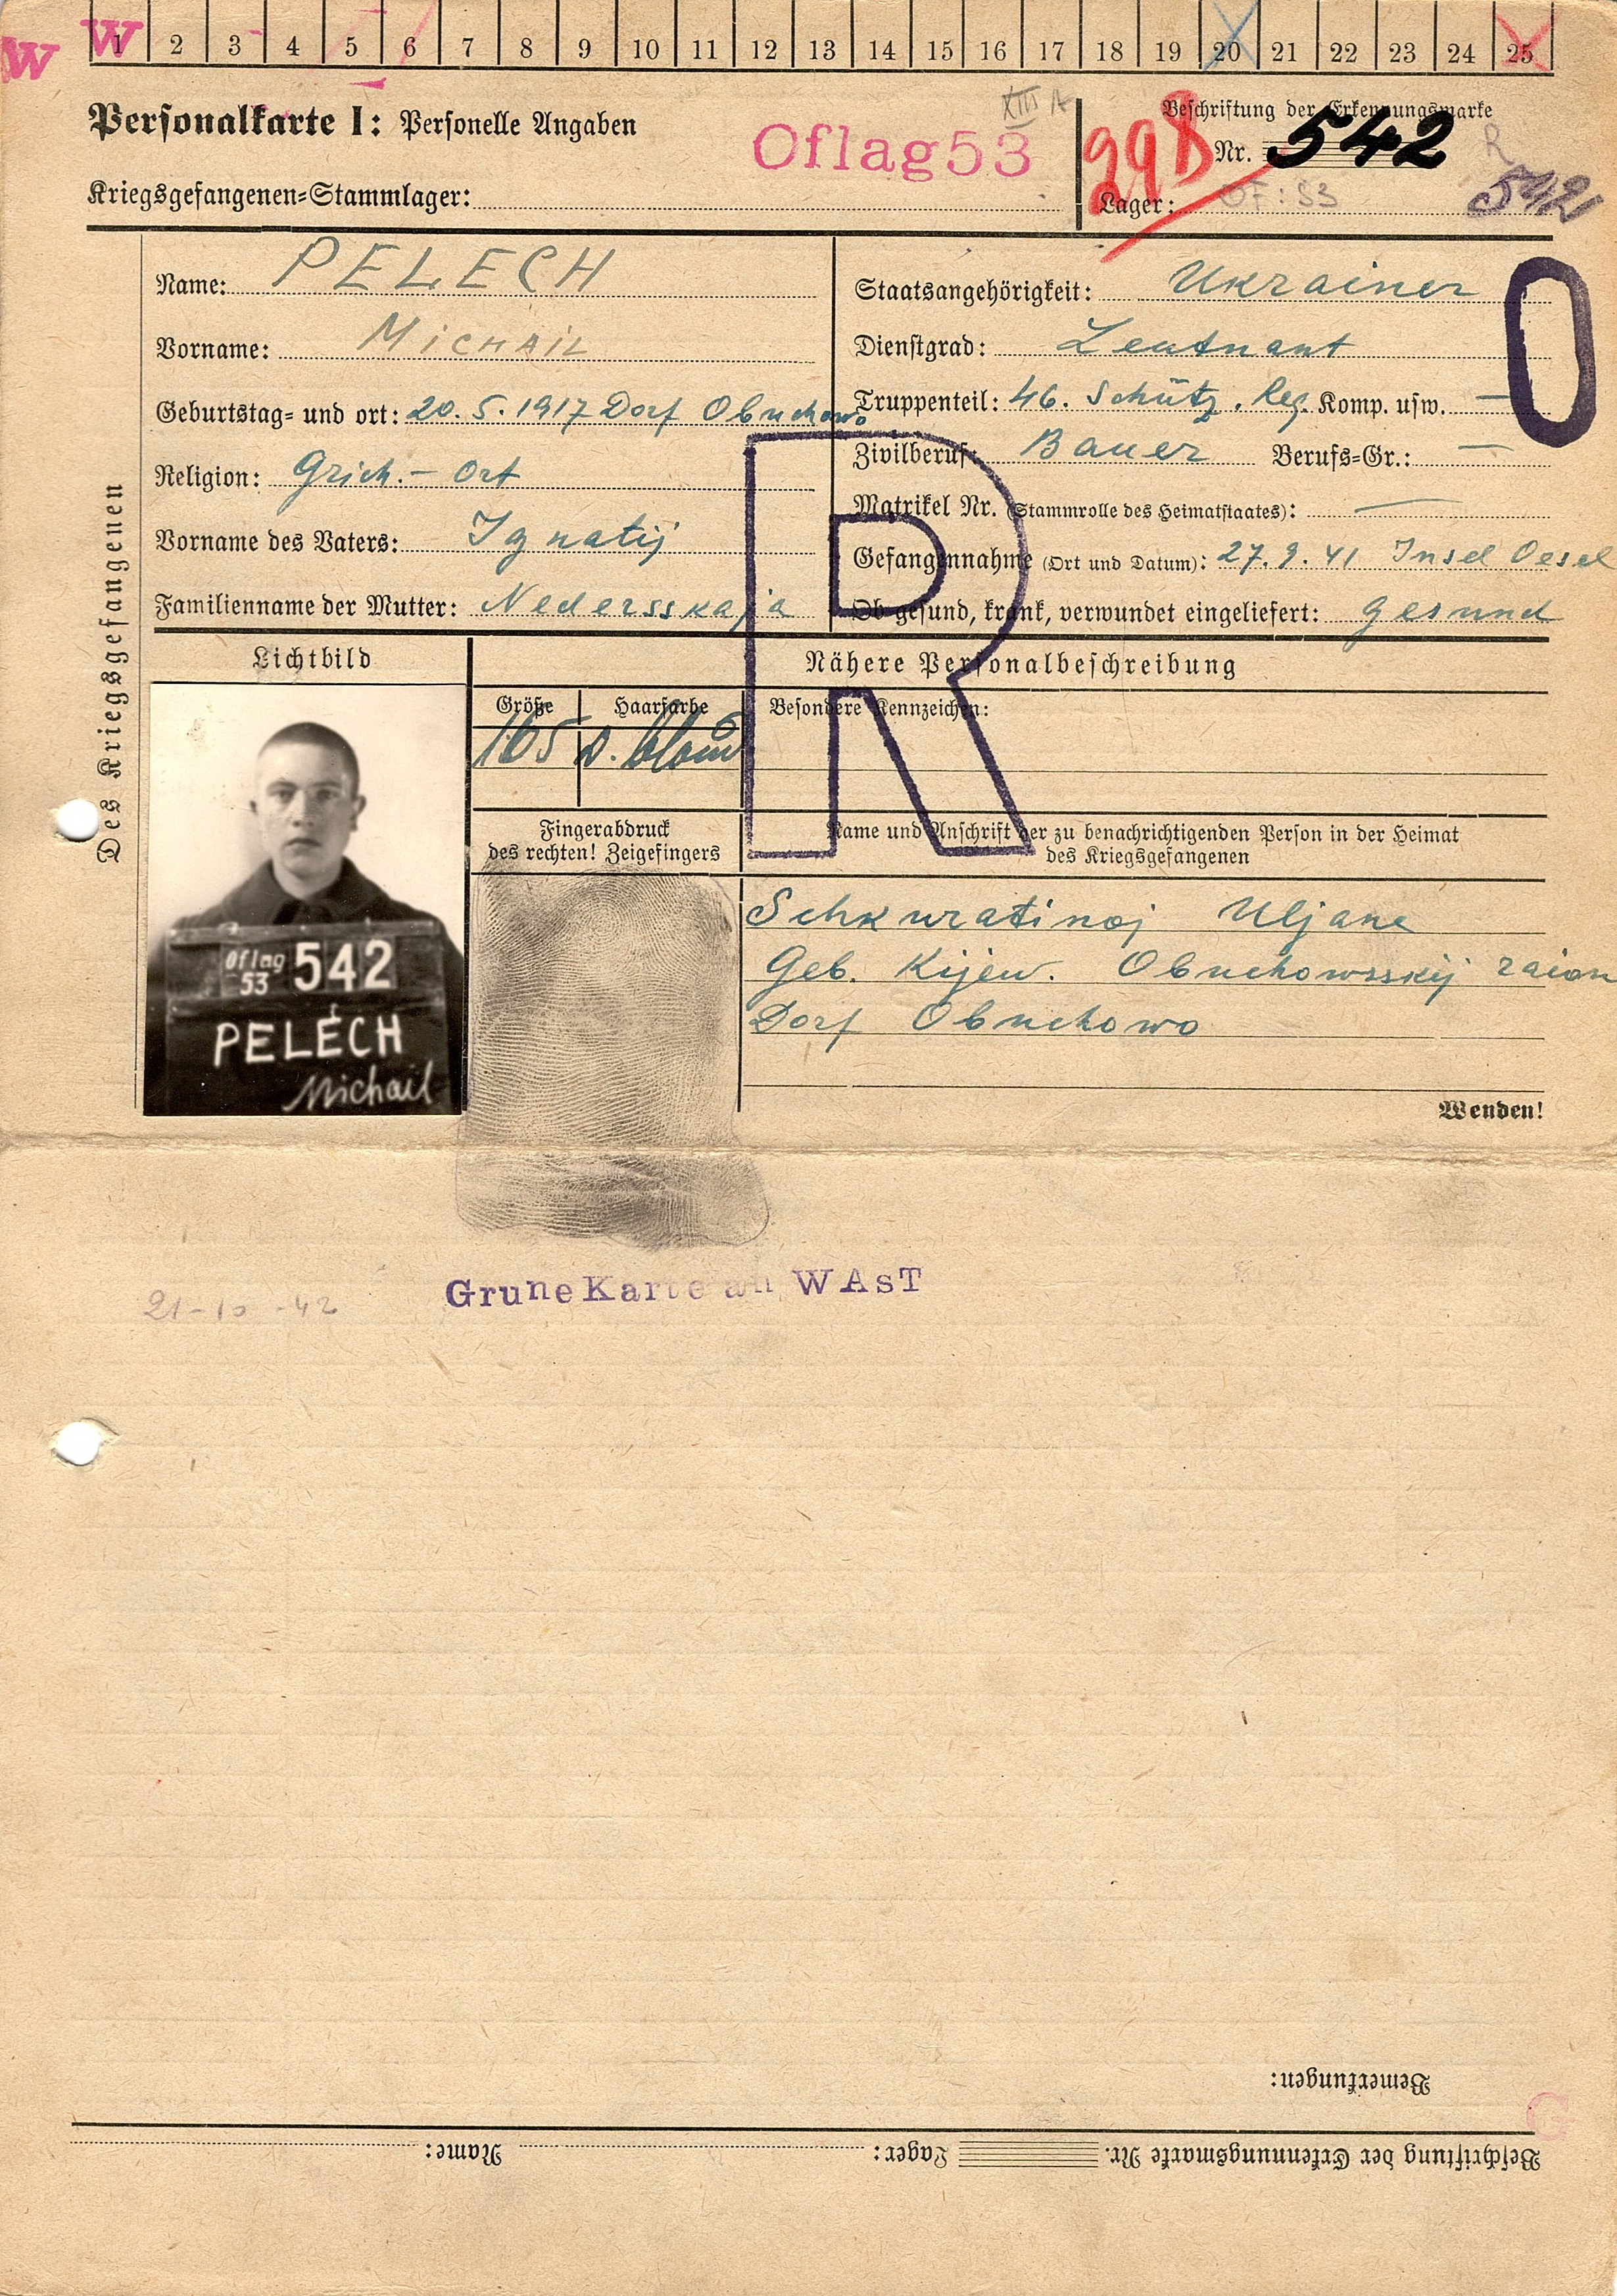 W W 1 2 3 4 5 6 7 8 9 10 11 12 13 14 15 16 17 18 19 20 21 22 23 24 25
Personalkarte I: Personelle Angaben
Oflag 53
XIII A
Kriegsgefangenen=Stammlager:
Beschriftung der Erkennungsmarke
Nr. 542
R
542
Lager: OF: 53
Des Kriegsgefangenen
Name: PELECH
Vorname: MiCHAiL
Geburtstag= und ort: 20. 5. 1917 Dorf Obuchowo
Religion: Grich.- Ort
Vorname des Vaters: Ignatij
Familienname der Mutter: Nedersskaja
Staatsangehörigkeit: Ukrainer
Dienstgrad: Leutnant
Truppenteil: 46. Schütz. Reg. Komp. usw. —
Zivilberuf: Bauer Berufs=Gr.: —
Matrikel Nr. (Stammrolle des Heimatstaates): —
Gefangennahme (Ort und Datum): 27. 9. 41 Insel Oesel
Ob gesund, krank, verwundet eingeliefert: gesund
O
R
Lichtbild
Nähere Personalbeschreibung
Größe Haarfarbe Besondere Kennzeichen:
165 d. blond
Fingerabdruck
des rechten! Zeigefingers
Name und Anschrift der zu benachrichtigenden Person in der Heimat
des Kriegsgefangenen
Schkuratinoj Uljane
Geb. Kijew. Obuchowsskij raion
Dorf Obuchowo
Oflag
53 542
PELECH
Michail
Wenden!
21-10-42
Grune Karte an WAsT
Bemerkungen:
G
Beschriftung der Erkennungsmarke Nr. Lager: Name: